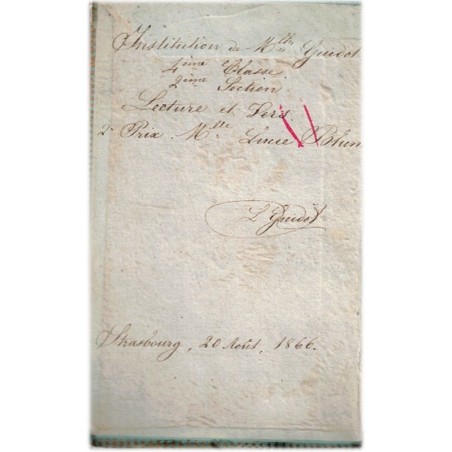 Institution de Mlle Guidot
4ème Classe.
2ème Section
Lecture et Vers.
2e Prix. Mlle Lucie
L Guidot
Strasbourg, 20 Août, 1866.